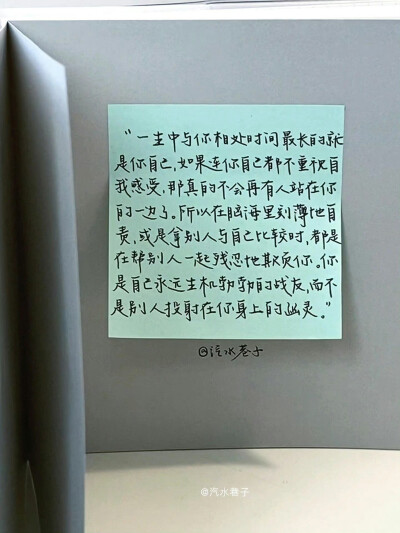 “一生中与你相处时间最长的就
是你自己，如果连你自己都不重视自
我感受，那真的不会再有人站在你
的一边了。所以在脑海里刻薄地自
责，或是拿别人与自己比较时，都是
在帮别人一起残忍地欺负你。你
是自己永远生机勃勃的战友，而不
是别人投射在你身上的幽灵。”
@汽水巷子
@汽水巷子